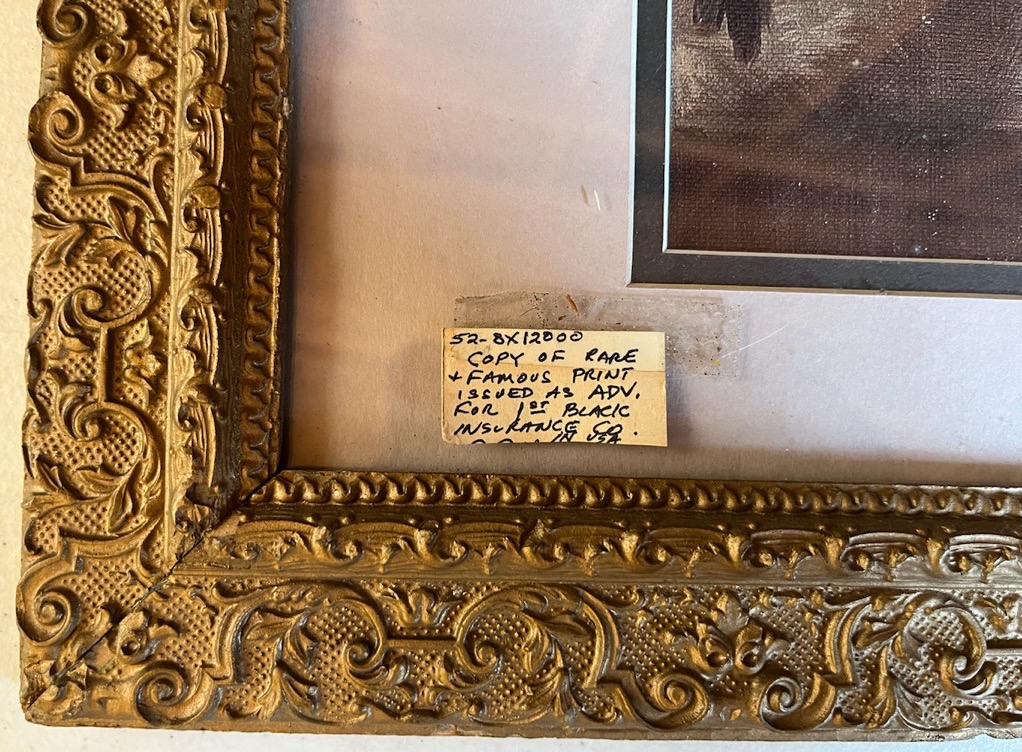 52-8X12000
COPY OF RARE
+ FAMOUS PRINT
ISSUED AS ADV.
FOR 1ST BLACK
INSURANCE CO.
IN USA